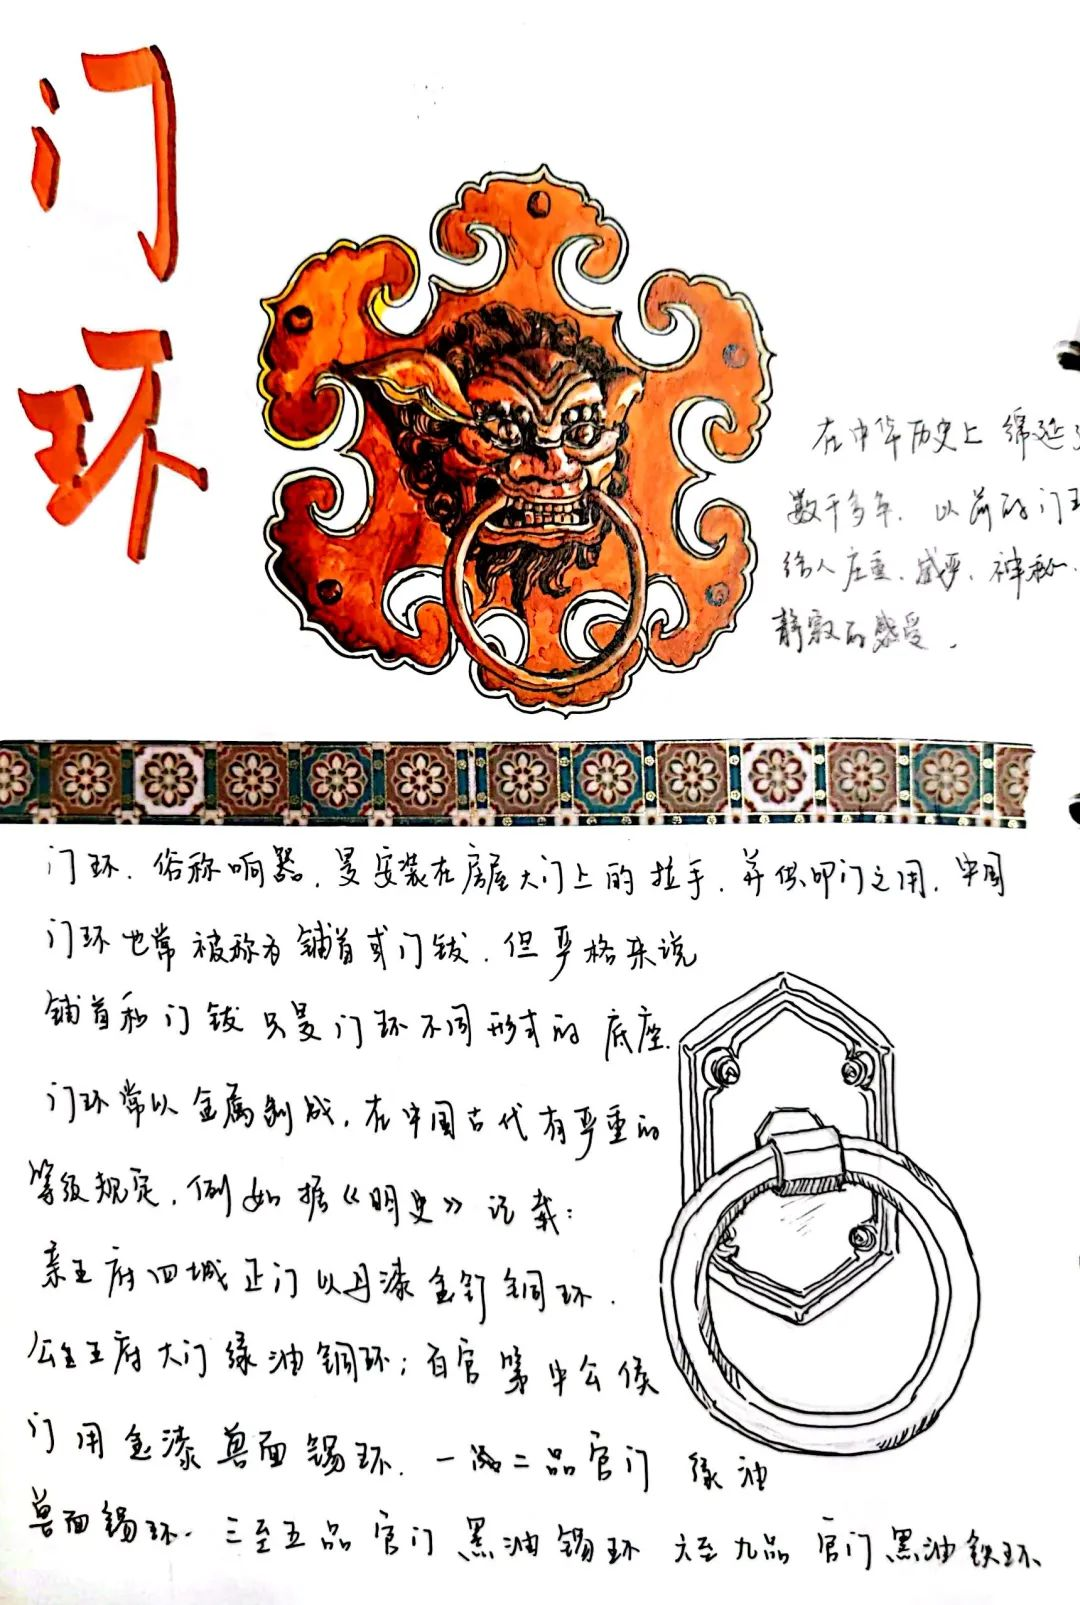 门环
在中华历史上绵延了
数千多年.以前的门环
给人庄重.威严.神秘.
静寂的感受.
门环.俗称响器.是安装在房屋大门上的拉手.并供叩门之用.中国
门环也常被称为铺首或门钹.但严格来说
铺首和门钹只是门环不同形式的底座.
门环常以金属制成.在中国古代有严重的
等级规定.例如据《明史》记载:
亲王府四城正门以丹漆金钉铜环.
公主王府大门绿油铜环;百官第中公侯
门用金漆兽面锡环.一二品官门绿油
兽面锡环.三至五品官门黑油锡环 六至九品官门黑油铁环